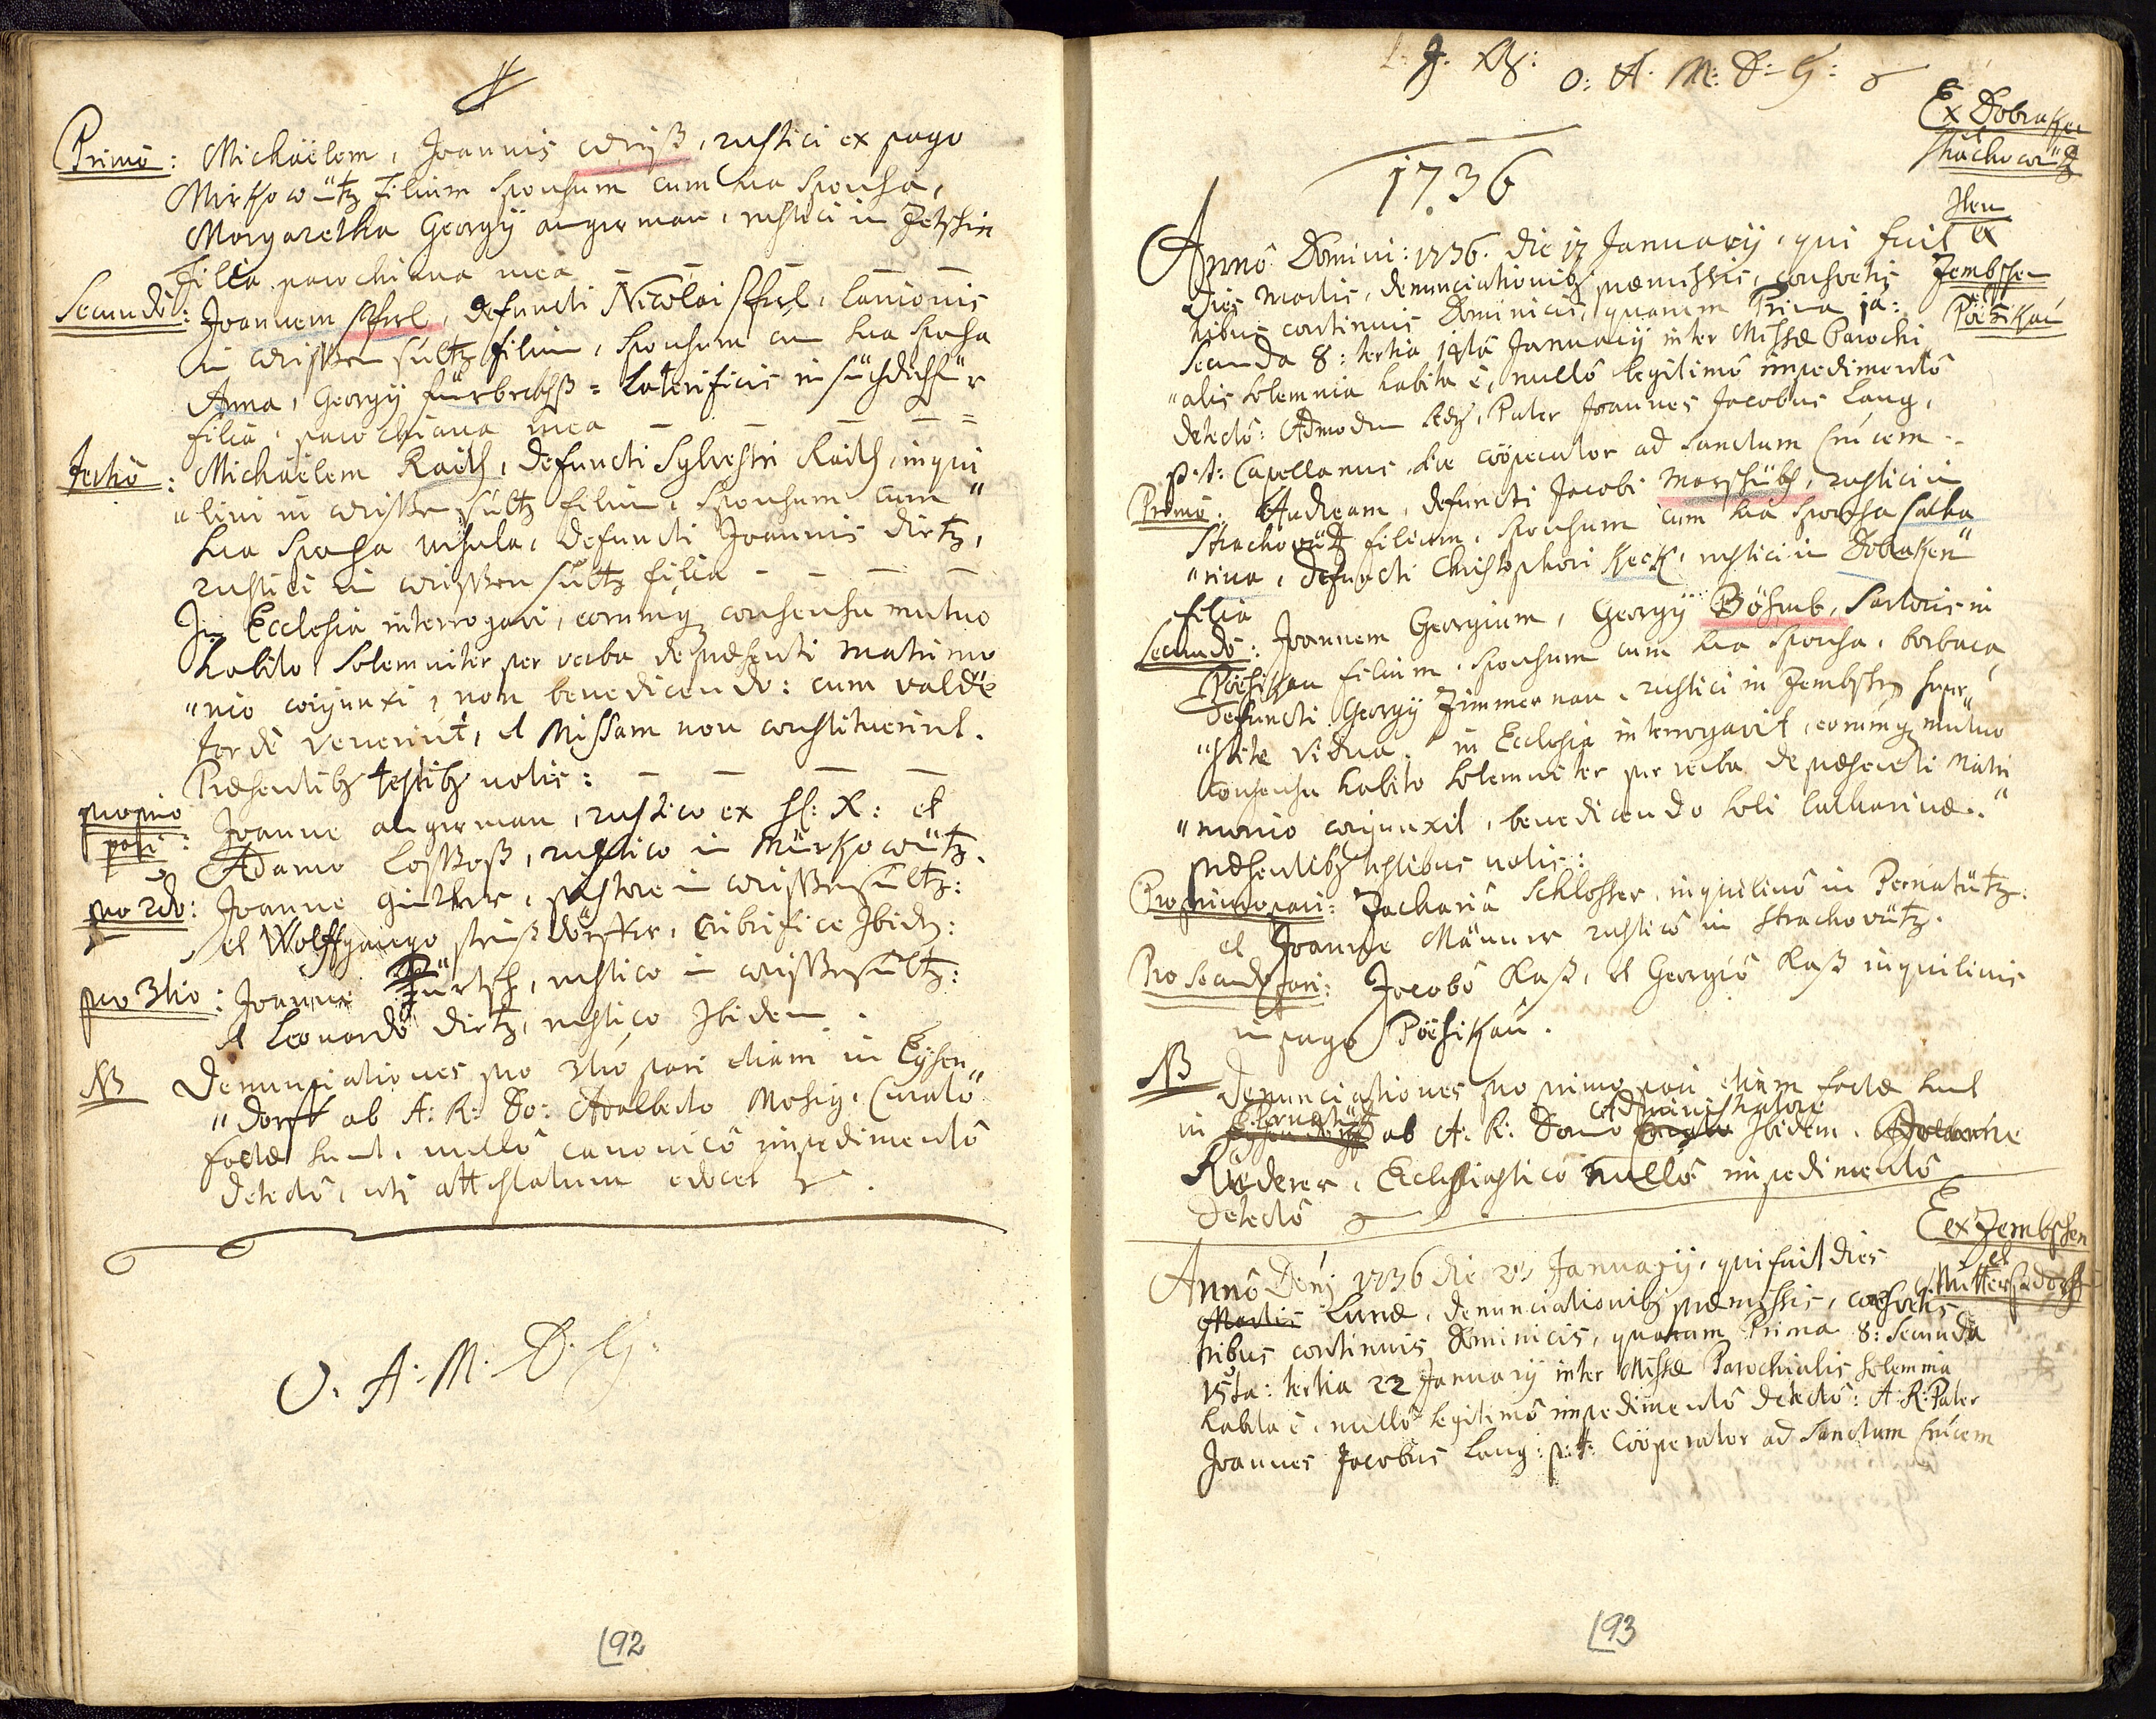 Primô: Michäelem, Joannis Weiß, rustici ex pago
Mirschowütz filium sponsum cum sua sponsa,
Margaretha Georgÿ angerman, rustici in Zetschin
filia parochiana mea — — — —
Secundô: Joannem, defuncti Nicolai, lanionis
in Weissen sultz filium, sponsum cum sua sponsa
Anna, Georgÿ = Laterificis in
filia, parochiana mea — — — =
Tertiô: Michäelem Raith, defuncti Sylvestri Raith, inqui
"lini in Weissen sultz filium, sponsum cum "
sua sponsa Ursula, defuncti Joannis dietz,
rustici in Weissen sultz filia — — — —
In Ecclesia interrogavi, eorumq consensu mutuo
habito solemniter per verba de præsenti matrimo
"nio conjunxi, non benedicendo: cum valdè
tardè venerint, et Missam non constituerint.
Præsentibq testibq notis: — — — —
pro primo
pari: Joanne angerman, rustico ex St: X: et
Adamo, rustico in Mürschowütz.
pro 2do: Joanne ginther, pistore in Weissensultz:
et Wolffgango, cribrifice Ibidem:
pro 3tio: Joanne, rustico in Weissensultz:
et Leonardo dietz, rustico Ibidem.
NB Denunciationes pro 3tio pari etiam in Eysen
"dorff ab A: R: Do: Adalberto Mosig, Curato
factæ sunt, nullô canonicô impedimentô
detectô, uti attestatum edocet.
O. A. M. D. G.
92
O: A: M: D: G:
1736
Ex Dobraken
Strachowütz
Item
ex
Zembschen
et
Pöesikau
Annô Domini: 1736. die 17 Januarÿ, qui fuit
dies Martis, denunciationibq præmissis, consuetis
tribus continuis Dominicis, quarum Prima 1a:
Secunda 8: tertia 14tâ Januarÿ inter Missæ Parochi
"alis solemnia habita ê, nullô legitimô impedimentô
detectô: Admodum Rdq, Pater Joannes Jacobus Lang,
p: t: Capellanus, sive cöoperator ad sanctum Crucem
Primô: Andream, defuncti Jacobi, rustici in
Strachowütz filium, sponsum cum sua sponsa Catha
"rina, defuncti Christophori Keck, rustici in Dobraken
filia
Secundô: Joannem Georgium, Georgÿ Böhmb, Sartoris in
Pöesikau filium, sponsum cum sua sponsa, barbara,
defuncti Georgÿ Zimmerman, rustici in Zembschen super
"stite vidua, in Ecclesia interrogavit, eorumq mutuo
consensu habito solemniter per verba de præsenti Matri
"monio conjunxit, benedicendo soli Catharinæ.
præsentibq testibus notis:
Pro primo pari: Zachariâ Schlosser, inquilinô in Pernatütz.
et Joanne Männer rusticô in Strachowütz.
Pro secundo pari: Jacobô Raß, et Georgiô Raß inquilinis
in pago Pöesikau.
NB Denunciationes pro primo pari etiam factæ sunt
in Pernatütz ab A: R: Domo Administratore Ibidem. Joanne
Riederer, Ecclesiasticô nullô impedimentô
detectô
Ex Zembschen
et
Muttersdorff
Annô Dnj 1736 die 23 Januarÿ, qui fuit dies
Martis Lunæ, denunciationibq præmissis, consuetis
tribus continuis Dominicis, quarum Prima 8: Secunda
15ta: tertia 22 Januarÿ inter Missæ Parochialis solemnia
habita ê, nullô legitimô impedimentô detectô: A: R: Pater
Joannes Jacobus Lang: p: t: cöoperator ad Sanctum Crucem
93